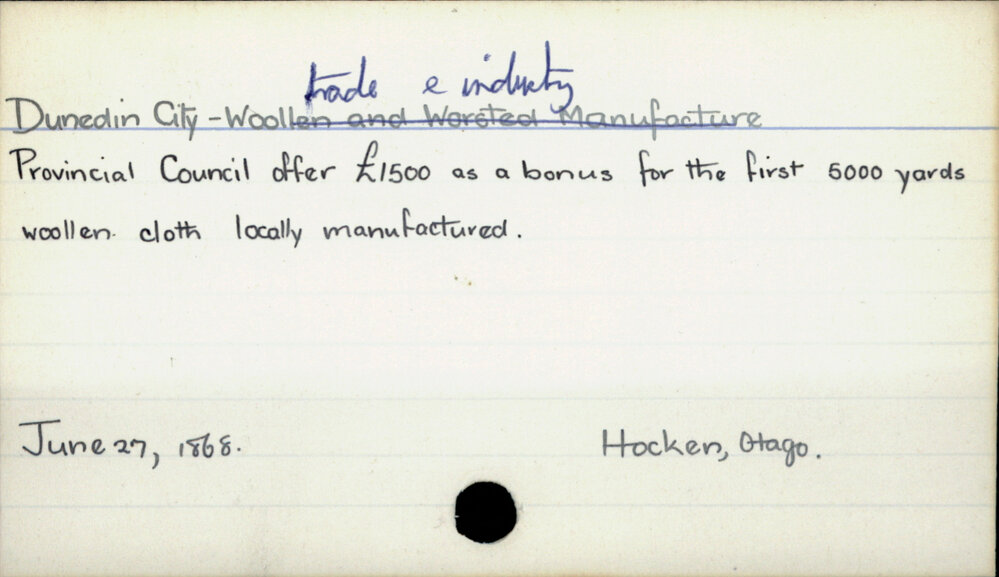 trade & industry
Dunedin City - Woollen and Worsted Manufacture
Provincial Council offer £1500 as a bonus for the first 5000 yards
woollen cloth locally manufactured.
June 27, 1868. Hocken, Otago.